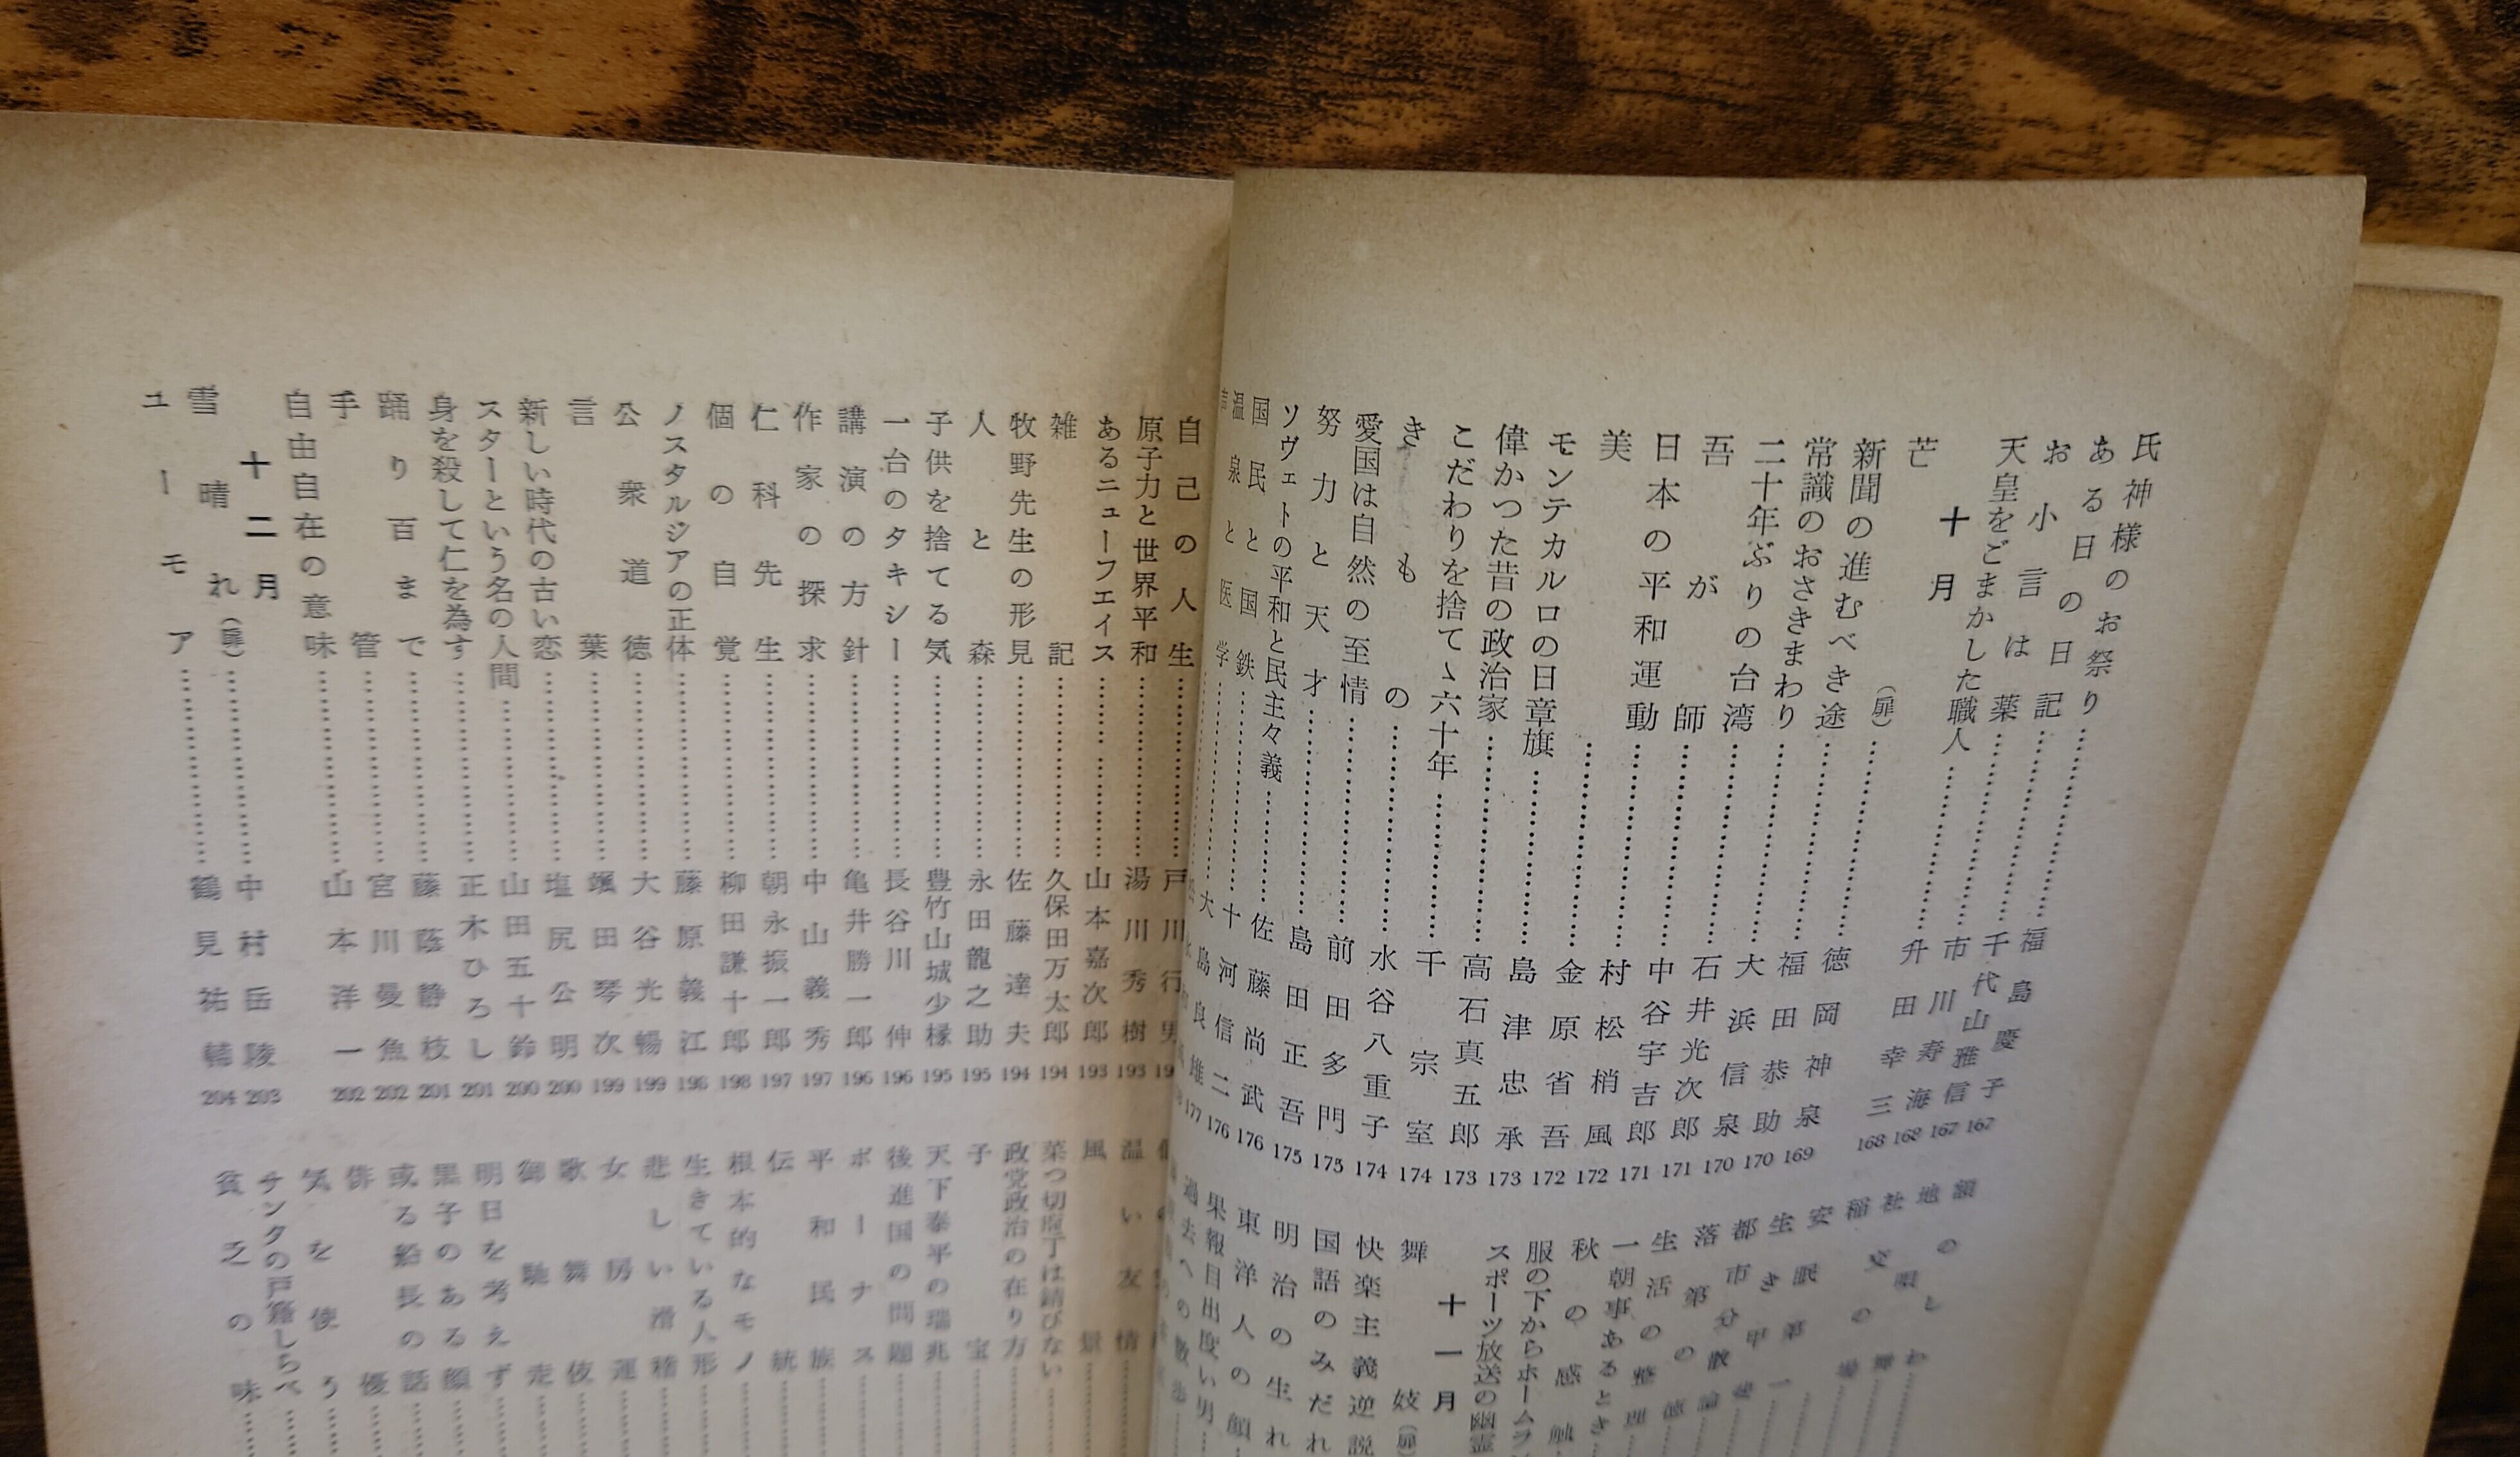 氏神様のお祭り……福島慶子 167
ある日の日記……千代山雅信 167
お小言は薬……市川寿海 168
天皇をごまかした職人……升田幸三 168
十月
芒(扉)……徳岡神泉
新聞の進むべき途……福田恭助 169
常識のおさきまわり……大浜信泉 170
二十年ぶりの台湾……石井光次郎 170
吾が師……中谷宇吉郎 171
日本の平和運動……村松梢風 171
美……金原省吾 172
モンテカルロの日章旗……島津忠承 172
偉かつた昔の政治家……高石真五郎 173
こだわりを捨てゝ六十年……千宗室 173
きもの……水谷八重子 174
愛国は自然の至情……前田多門 174
努力と天才……島田正吾 175
ソヴェトの平和と民主々義……佐藤尚武 175
国民と国鉄……十河信二 176
温泉と医学……大島良雄 176
177
生活の整理
一朝事あるとき
秋の感触
服の下からホームラ
スポーツ放送の幽霊
十一月
舞妓(扉)
快楽主義逆説
国語のみだれ
明治の生れ
東洋人の顔
果報目出度い男
過去への散歩
自己の人生……戸川行男
原子力と世界平和……湯川秀樹 193
あるニューフエイス……山本嘉次郎 193
雑記……久保田万太郎 194
牧野先生の形見……佐藤達夫 194
人と森……永田龍之助 195
子供を捨てる気……豊竹山城少椽 195
一台のタキシー……長谷川伸 196
講演の方針……亀井勝一郎 196
作家の探求……中山義秀 197
仁科先生……朝永振一郎 197
個の自覚……柳田謙十郎 198
ノスタルジアの正体……藤原義江 198
公衆道徳……大谷光暢 199
言葉……颯田琴次 199
新しい時代の古い恋……塩尻公明 200
スターという名の人間……山田五十鈴 200
身を殺して仁を為す……正木ひろし 201
踊り百まで……藤蔭静枝 201
手管……宮川曼魚 202
自由自在の意味……山本洋一 202
十二月
雪晴れ(扉)……中村岳陵 203
ユーモア……鶴見祐輔 204
温い友情
風景
菜つ切庖丁は錆びない
政党政治の在り方
子宝
天下泰平の瑞兆
後進国の問題
ボーナス
平和民族
伝統
根本的なモノ
生きている人形
悲しい滑稽
女房運
歌舞伎
御馳走
明日を考えず
黒子のある顔
或る船長の話
俳優
気を使う
サンタの戸籍しらべ
貧乏の味